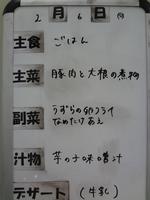 2月6日(月)
主食 ごはん
主菜 豚肉と大根の煮物
副菜 うずらの卵フライ
なめたけあえ
汁物 芋の子味噌汁
デザート (牛乳)